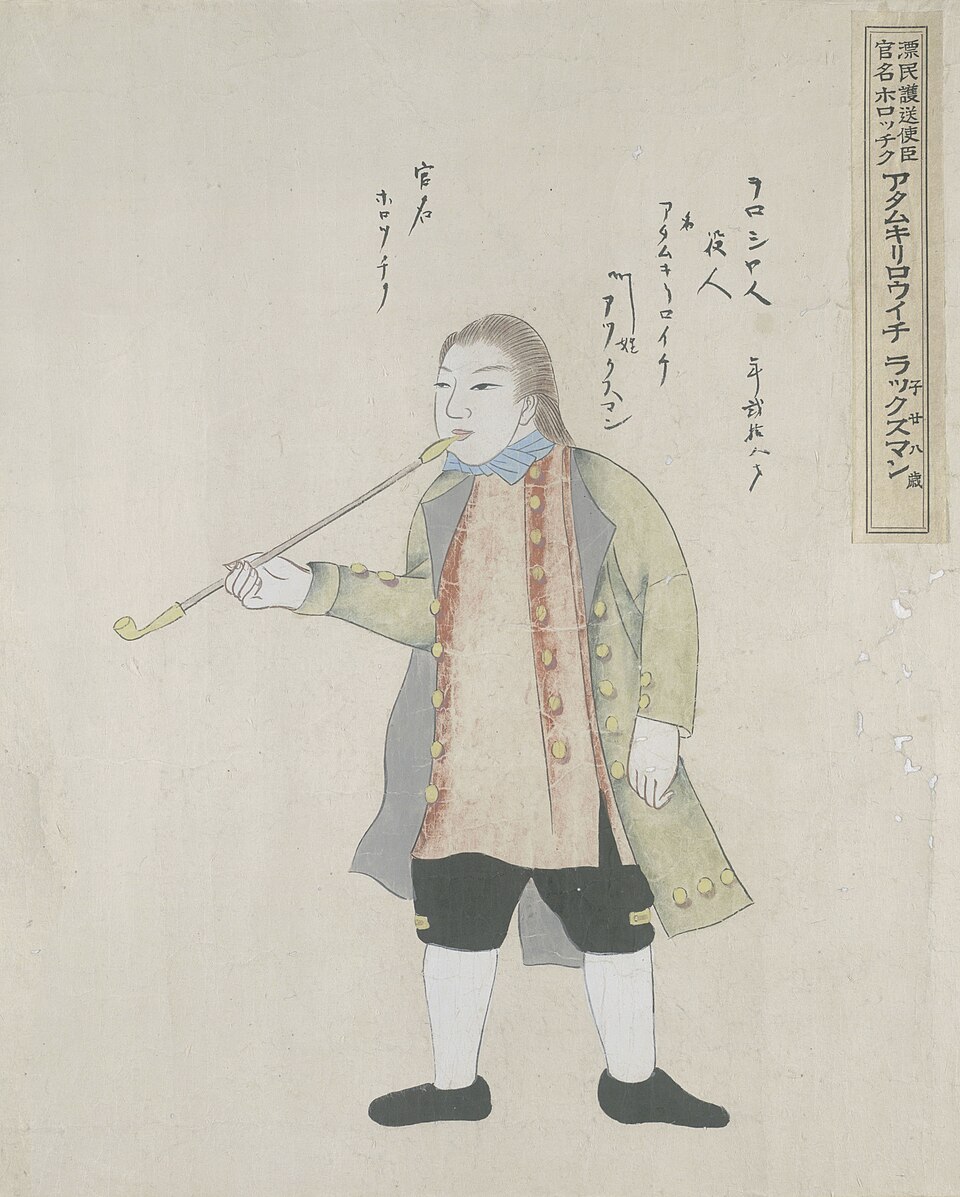 漂民護送使臣
官名ホロッチク アタムキリロウイチ ラックズマン 子廿八歳
ヲロシヤ人 年弐拾八才
役人
名 アタムキリロイチ
姓 アツクスマン
官名
ホロツチク